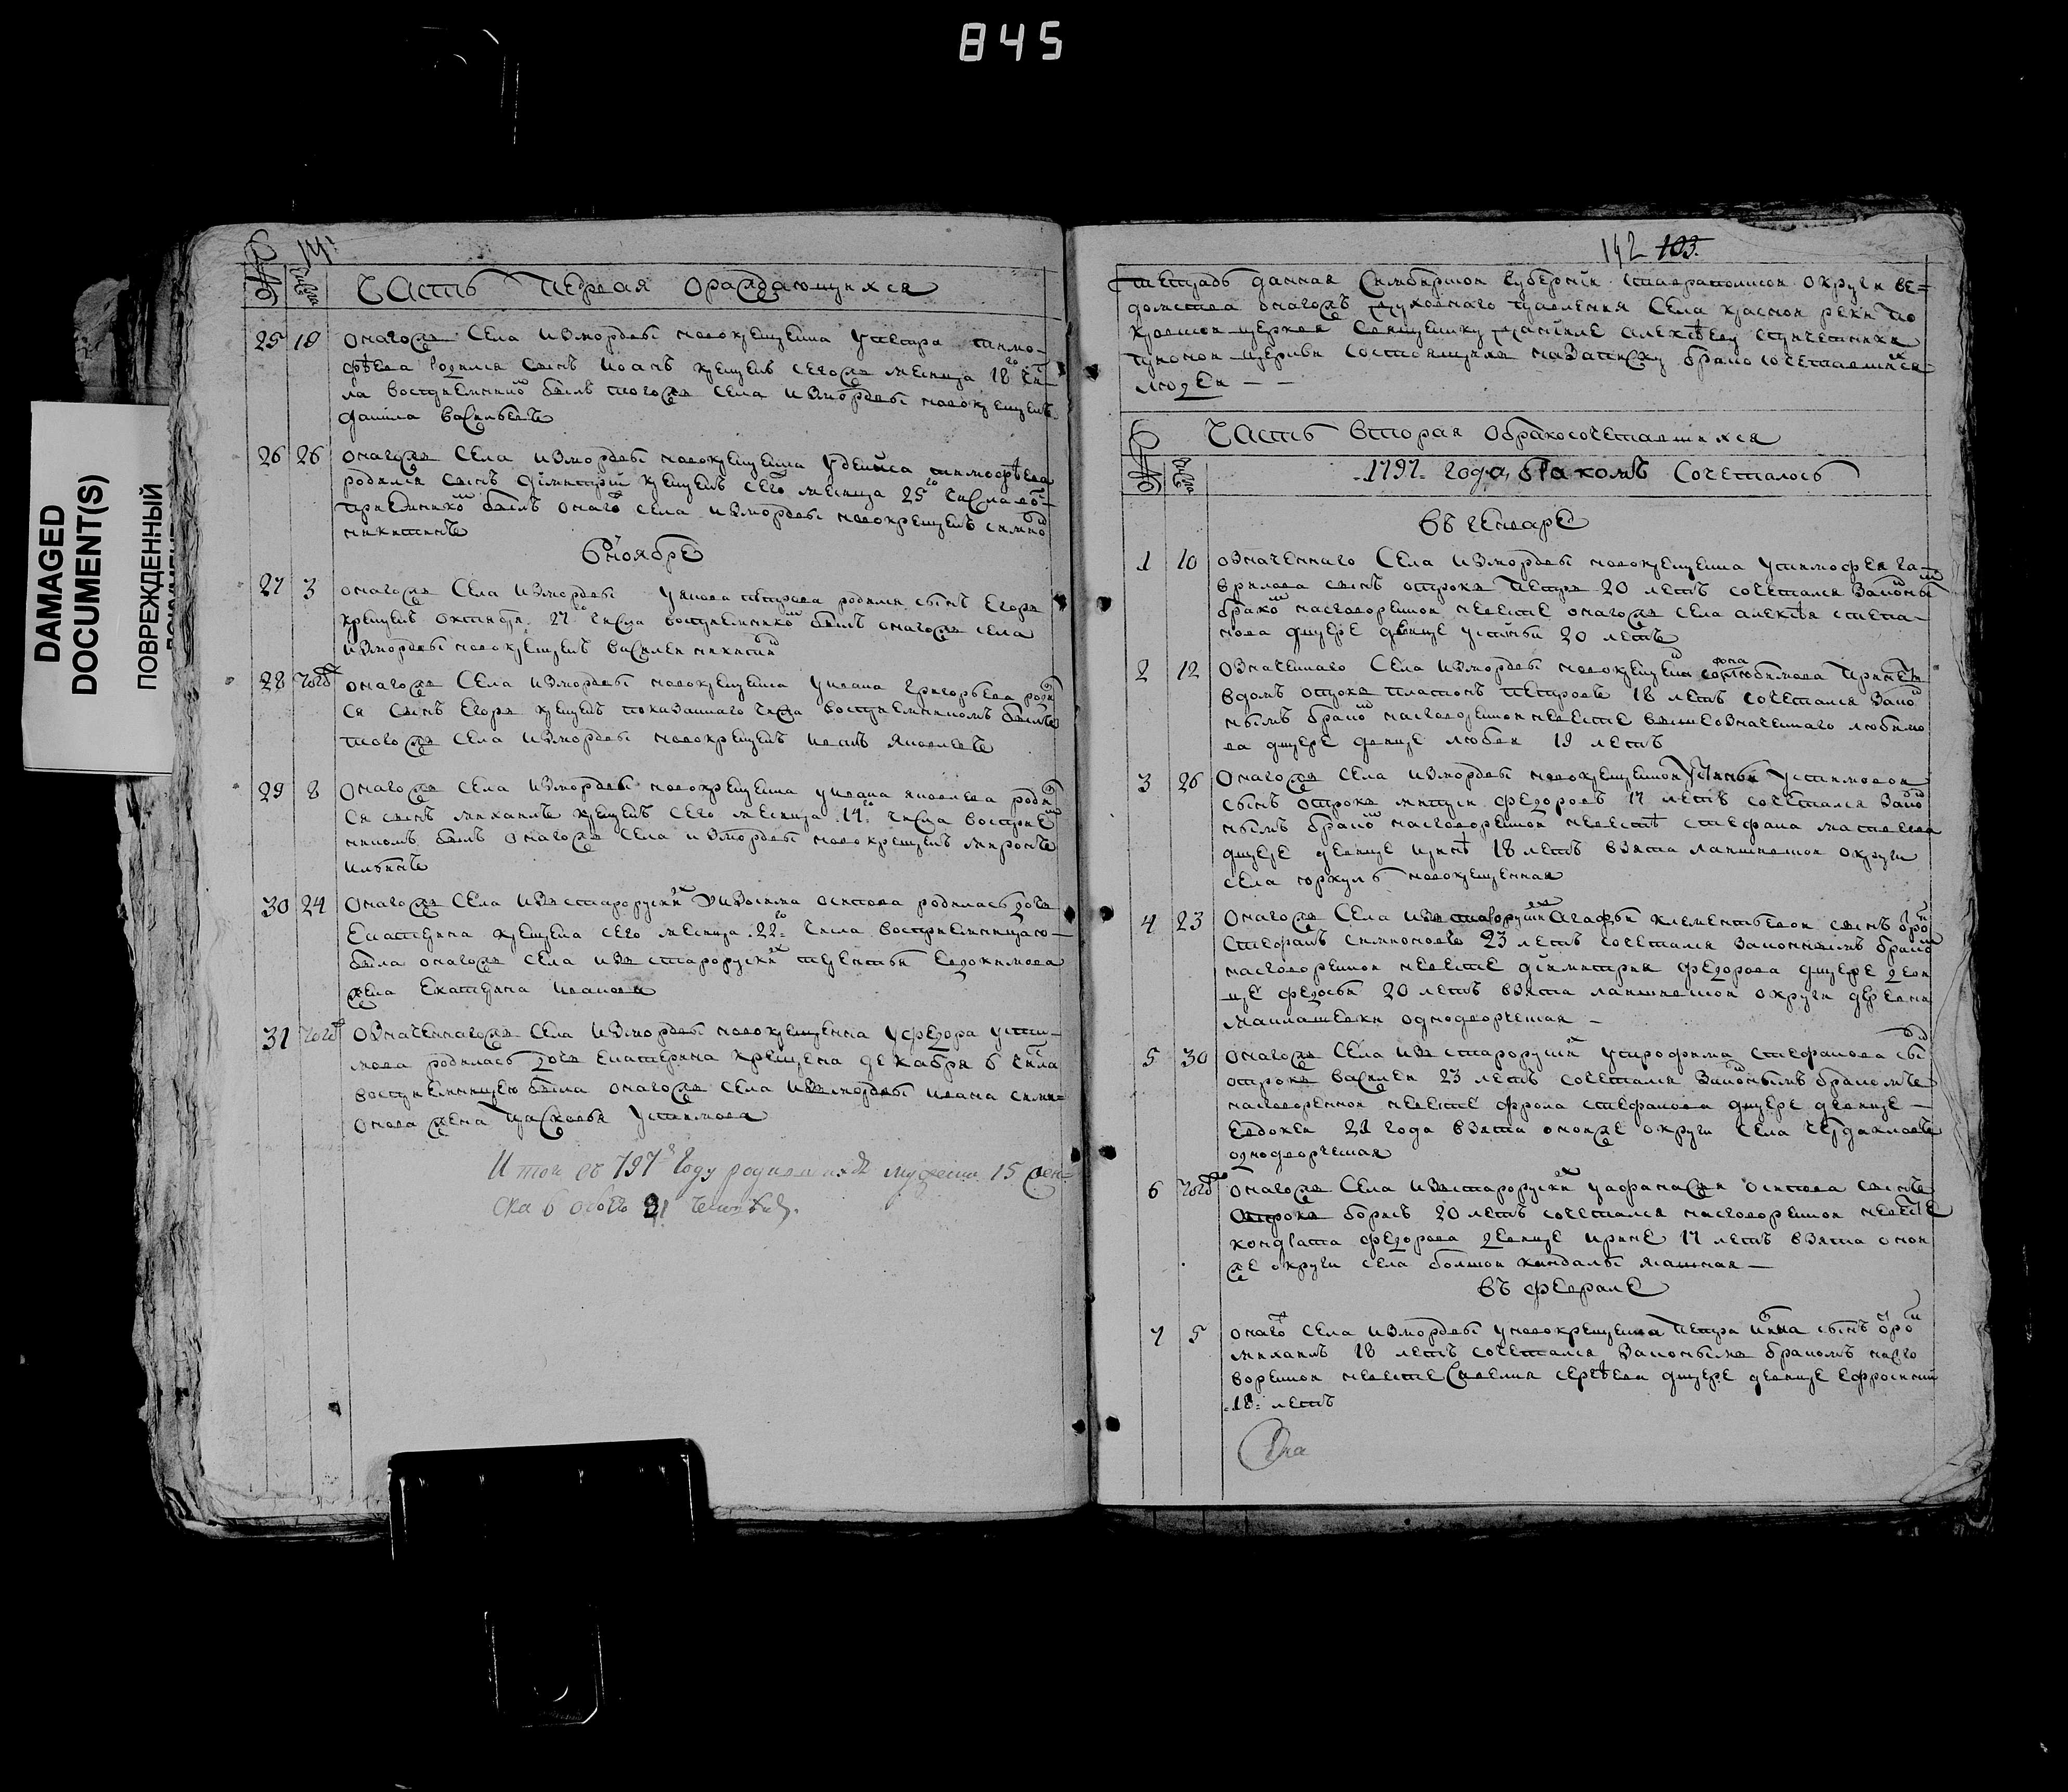 845
DAMAGED
DOCUMENT(S)
ПОВРЕЖДЕННЫЙ
№ Число Часть первая ораждающихся
25 19 Онагоже села измордвы новокрещена упетра тимо-
фѣева родился сынъ иоанъ крещенъ сегоже месеца 18го чи-
ла восприемникомъ былъ тогоже села измордвы новокрещенъ
данила васильевъ
26 26 Онагоже села измордвы новокрещена удениса тимофѣева
родился сынъ димитрий крещенъ сего месеца 25го числа вос-
приемникомъ былъ онаго села измордвы новокрещенъ симионъ
никитинъ
В ноябре
27 3 Онагоже села измордвы уякова петрова родился сынъ Егоръ
крещенъ октября 27го числа восприемникомъ былъ онагоже села
измордвы новокрещенъ василей никитинъ
28 тогож онагоже села измордвы новокрещена уивана григорьева родил
ся сынъ Егоръ крещенъ показаннаго числа восприемникомъ былъ
тогоже села измордвы новокрещенъ иванъ яковлевъ
29 8 Онагоже села измордвы новокрещена уивана яковлева родил
ся сынъ михаилъ крещенъ сего месеца 14го числа восприем
никомъ былъ онагоже села измордвы новокрещенъ миронъ
ильинъ
30 24 Онагоже села изъ старорускихъ уизосима осипова родилась дочь
Екатерина крещена сего месеца 22го числа восприемницаю
была онагоже села изъ старорускихъ терентья Евдокимова
жена Екатерина иванова
31 тогож Означеннагоже села измордвы новокрещенна уфедора усти-
нова родилась дочь Екатерина крещена декабря 6 числа
восприемницею была онагоже села измордвы ивана сими-
онова жена прасковья устинова
Итого въ 797м году родившихся мужеска 15 жен-
ска 6 обоего 31 человекъ.
142 103
Тетрадь данная Симбирской губернии ставропольской округи ве-
домства онагожъ духовнаго правления села красной реки по
кровской церкви священнику даниле алексѣеву спричетники
прионой церкви состоящими назаписку бракосочетавшихся
людей
№ Число Часть вторая обракосочетавшихся
1797 года бракомъ сочеталось
Въ генваре
1 10 означеннаго села измордвы новокрещена утимофея га-
врилова сынъ отрокъ петръ 20 летъ сочетался законымъ
бракомъ насговоренной невесте онагоже села алексѣя степа-
нова дщере девице устиньи 20 летъ
2 12 Означеннаго села измордвы новокрещен фома любимова приняты
вдомъ отрокъ платонъ петровъ 18 летъ сочетался зако
нымъ бракомъ насговоренной невесте вышеозначеннаго любимо
ва дщере девице любви 19 летъ
3 26 Онагоже села измордвы новокрещеной устиньи устимовой
сынъ отрокъ митрей федоровъ 17 летъ сочетался зако
нымъ бракомъ насговореной невестѣ стефана матвеева
дщере девице иринѣ 18 летъ взята лаишевской округи
села юркуль новокрещенная
4 23 Онагоже села изъ старорускихъ агафьи клементьевой сынъ отрокъ
стефанъ симионовъ 23 летъ сочетался законнымъ бракомъ
насговоренной невесте димитрия федорова дщере деви
це федосьи 20 летъ взята лаишевской округи деревни
маклашевки однодворческая
5 30 Онагоже села изъ старорускихъ утрофима стефанова сынъ
отрокъ василей 23 летъ сочетался законымъ бракомъ
насговоренной невесте фрола стефанова дщере девице
Евдокеи 21 года взята онойже округи села чердаковъ
однодворческая
6 тогож онагоже села изъстарорускихъ уафанасия осипова сынъ
отрокъ борисъ 20 летъ сочетался насговоренной невесте
кондрата федорова девице ирине 17 летъ взята оной
же округи села большой кандалы ясашная
Въ феврале
7 5 онагож села измордвы уновокрещена петра сынъ отрокъ
михаилъ 18 летъ сочетался законымъ бракомъ насго
вореной невесте савелия сергѣева дщере девице ефросинии
18 летъ